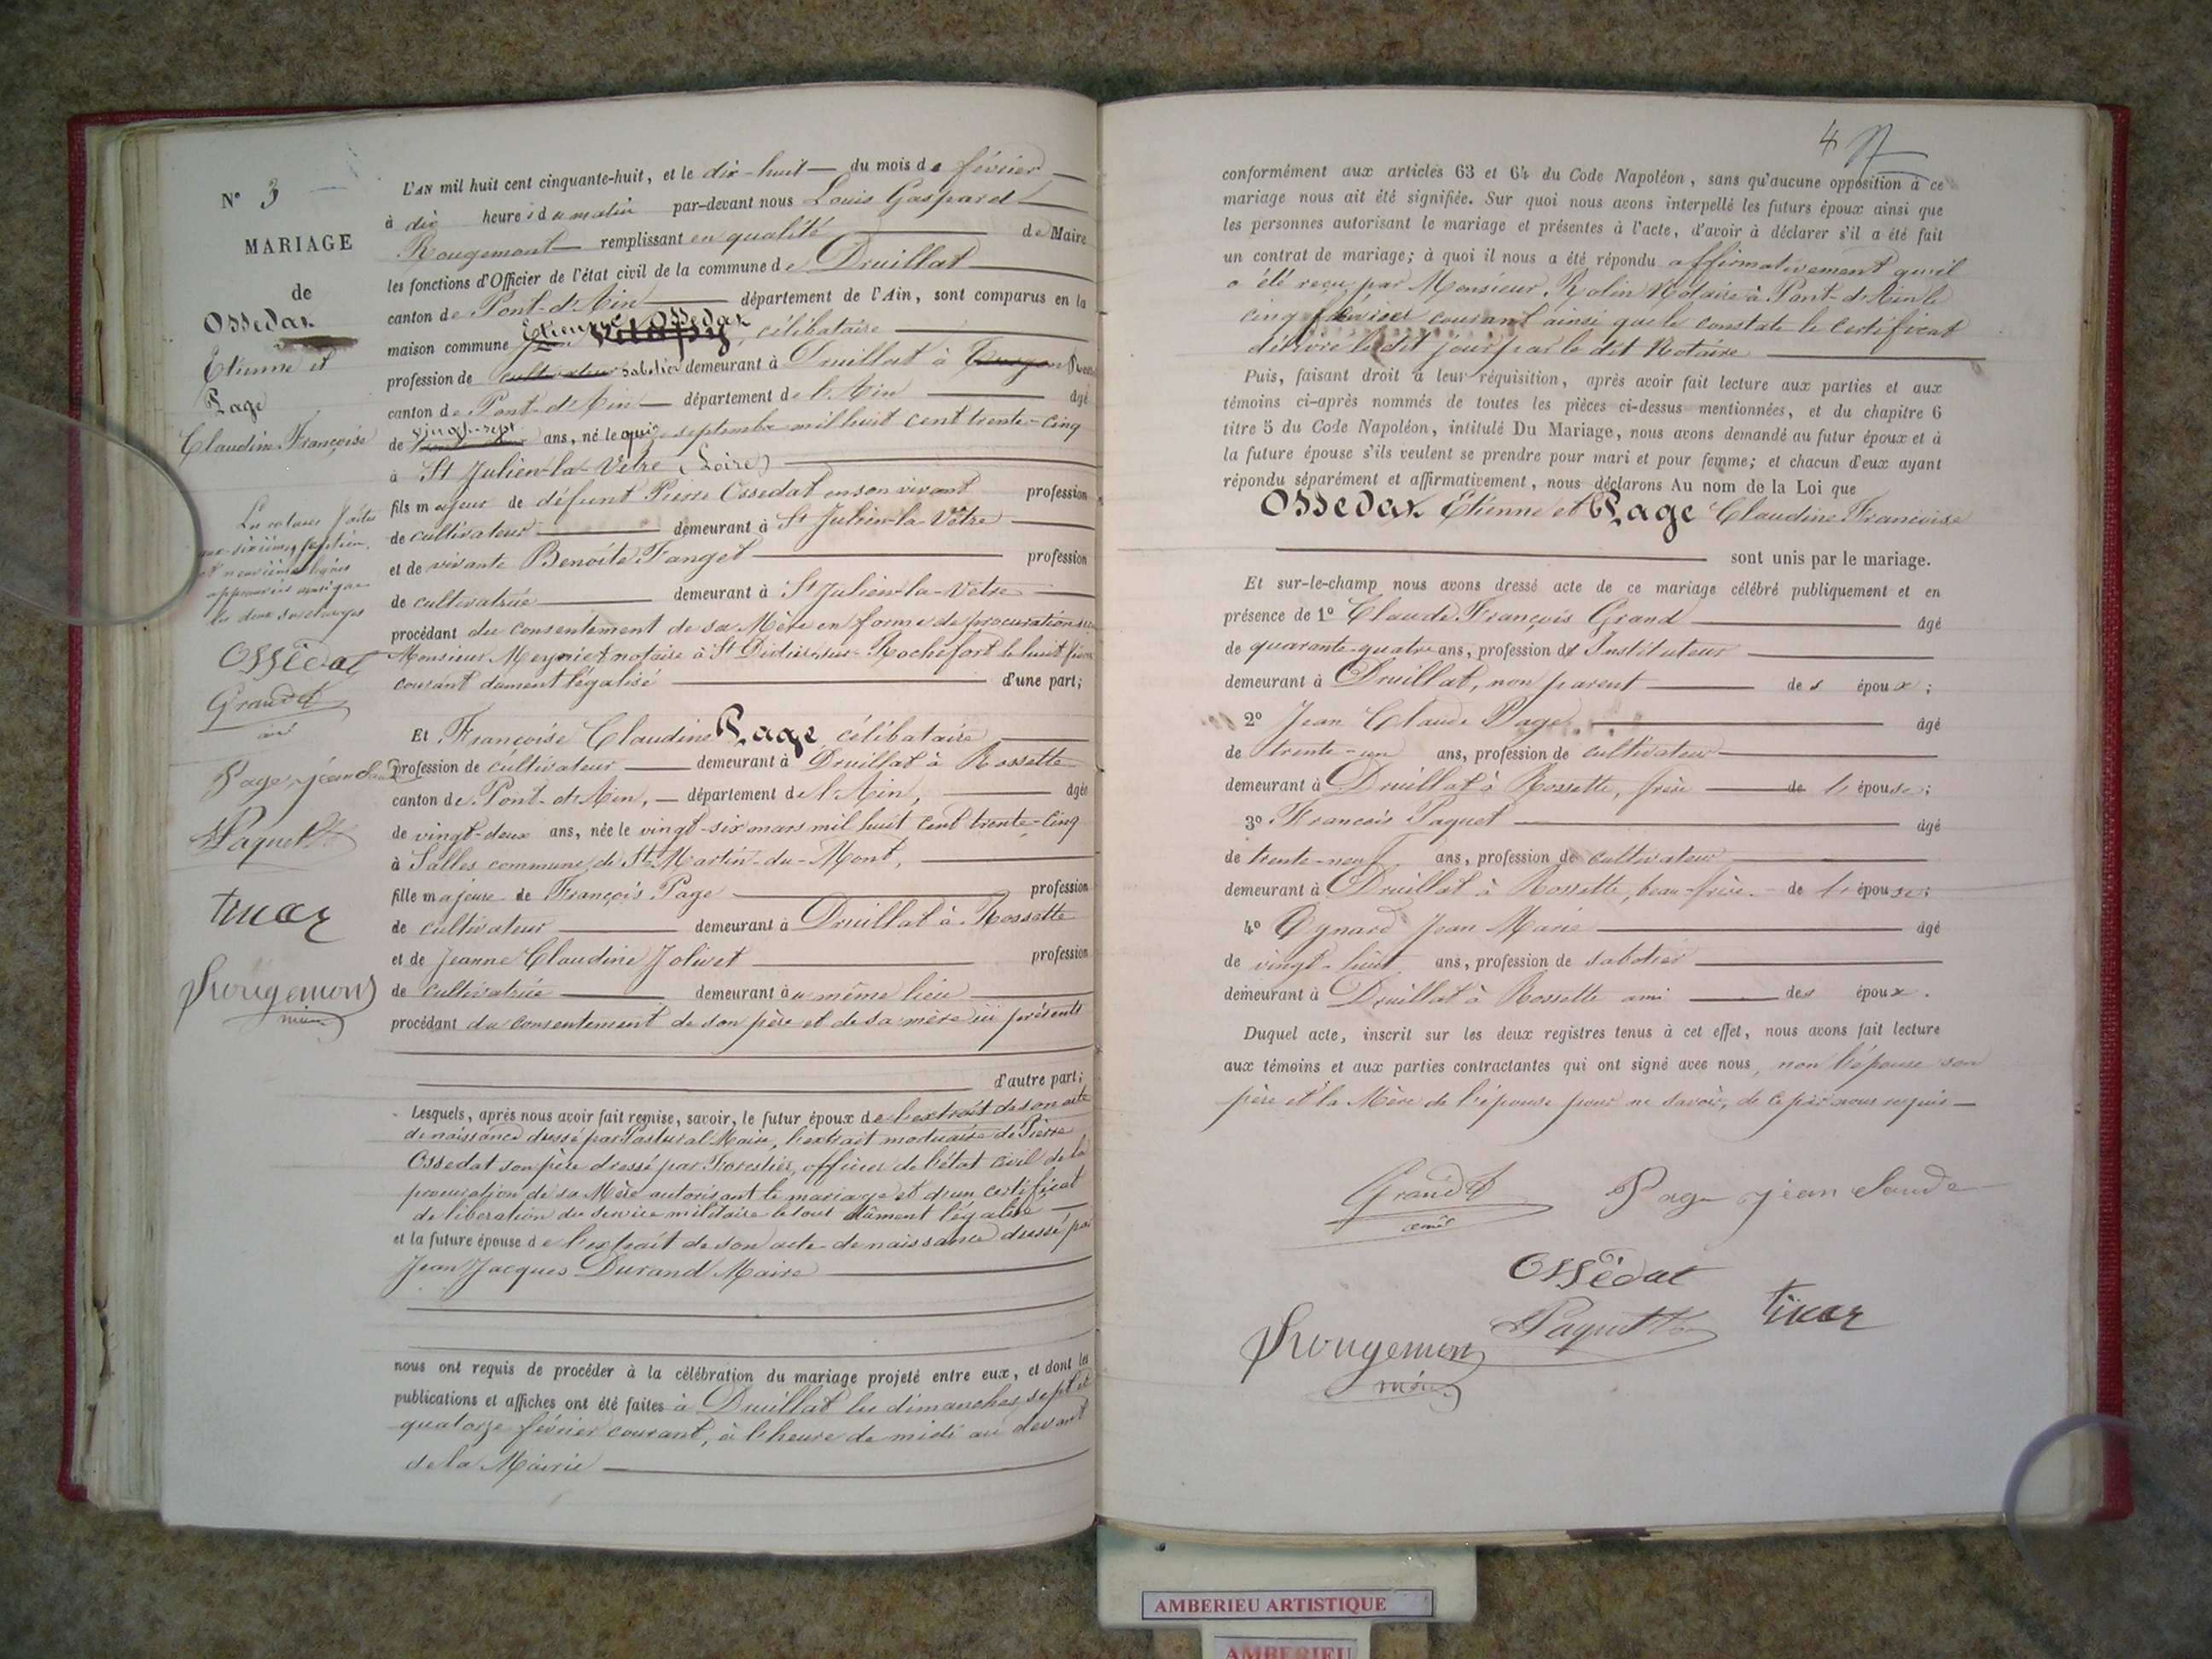 N° 3
MARIAGE
de
Ossedat
Etienne et
Page
Claudine Françoise
Les ratures faites
aux sixième, septième,
et neuvième lignes
approuvées ainsi que
les deux surcharges
Ossedat
Grand
ainé
Page jean
Paquet
Rougemont
maire
L'AN mil huit cent cinquante-huit, et le dix-huit du mois de février
à dix heures du matin par-devant nous Louis Gaspard
Rougemont remplissant en qualité de Maire
les fonctions d'Officier de l'état civil de la commune de Druillat
canton de Pont-d'Ain département de l'Ain, sont comparus en la
maison commune Etienne Ossedat, célibataire
profession de cultivateur sabotier demeurant à Druillat à
canton de Pont-d'Ain département de l'Ain âgé
de vingt-sept ans, né le septembre mil huit cent trente-cinq
à St Julien-la-Vêtre (Loire)
fils majeur de défunt Pierre Ossedat en son vivant profession
de cultivateur demeurant à St Julien-la-Vêtre
et de vivante Benoîte Fanget profession
de cultivatrice demeurant à St Julien-la-Vêtre
procédant du consentement de sa Mère en forme de procuration
Monsieur notaire à St Didier-sur-Rochefort le huit
courant dument légalisé d'une part;
Et Françoise Claudine Page, célibataire
profession de cultivateur demeurant à Druillat à Rossette
canton de Pont-d'Ain, département de l'Ain, âgée
de vingt-deux ans, née le vingt-six mars mil huit cent trente-cinq
à Salles commune de St Martin-du-Mont,
fille majeure de François Page profession
de cultivateur demeurant à Druillat à Rossette
et de Jeanne Claudine Jolivet profession
de cultivatrice demeurant au même lieu
procédant du consentement de son père et de sa mère ici présents
d'autre part;
Lesquels, après nous avoir fait remise, savoir, le futur époux de l'extrait de son acte
de naissance dressé par Pastural Maire, l'extrait mortuaire de Pierre
Ossedat son père dressé par Forestier, officier de l'état civil de la
procuration de sa Mère autorisant le mariage et d'un certificat
de libération du service militaire le tout dûment légalisé
et la future épouse de l'extrait de son acte de naissance dressé par
Jean Jacques Durand Maire
nous ont requis de procéder à la célébration du mariage projeté entre eux, et dont les
publications et affiches ont été faites à Druillat les dimanches sept et
quatorze février courant, à l'heure de midi au devant
de la Mairie
4
conformément aux articles 63 et 64 du Code Napoléon, sans qu'aucune opposition à ce
mariage nous ait été signifiée. Sur quoi nous avons interpellé les futurs époux ainsi que
les personnes autorisant le mariage et présentes à l'acte, d'avoir à déclarer s'il a été fait
un contrat de mariage; à quoi il nous a été répondu affirmativement qu'il
a été reçu par Monsieur Rolin Notaire à Pont-d'Ain le
cinq février courant ainsi que le constate le certificat
délivré le dit jour par le dit Notaire
Puis, faisant droit à leur réquisition, après avoir fait lecture aux parties et aux
témoins ci-après nommés de toutes les pièces ci-dessus mentionnées, et du chapitre 6
titre 5 du Code Napoléon, intitulé Du Mariage, nous avons demandé au futur époux et à
la future épouse s'ils veulent se prendre pour mari et pour femme; et chacun d'eux ayant
répondu séparément et affirmativement, nous déclarons Au nom de la Loi que
Ossedat Etienne et Page Claudine Françoise
sont unis par le mariage.
Et sur-le-champ nous avons dressé acte de ce mariage célébré publiquement et en
présence de 1° Claude François Grand âgé
de quarante-quatre ans, profession d'Instituteur
demeurant à Druillat, non parent des époux;
2° Jean Claude Page âgé
de trente-un ans, profession de cultivateur
demeurant à Druillat à Rossette, frère de l'épouse;
3° François Paquet âgé
de trente-neuf ans, profession de cultivateur
demeurant à Druillat à Rossette, beau-frère de l'épouse;
4° Jean Marie âgé
de vingt-huit ans, profession de sabotier
demeurant à Druillat à Rossette ami des époux.
Duquel acte, inscrit sur les deux registres tenus à cet effet, nous avons fait lecture
aux témoins et aux parties contractantes qui ont signé avec nous, non l'épouse son
père et la Mère de l'épouse pour ne savoir, de ce par nous requis
Grand
ainé
Page jean Claude
Ossedat
Paquet
Rougemont
maire
AMBERIEU ARTISTIQUE
AMBERIEU